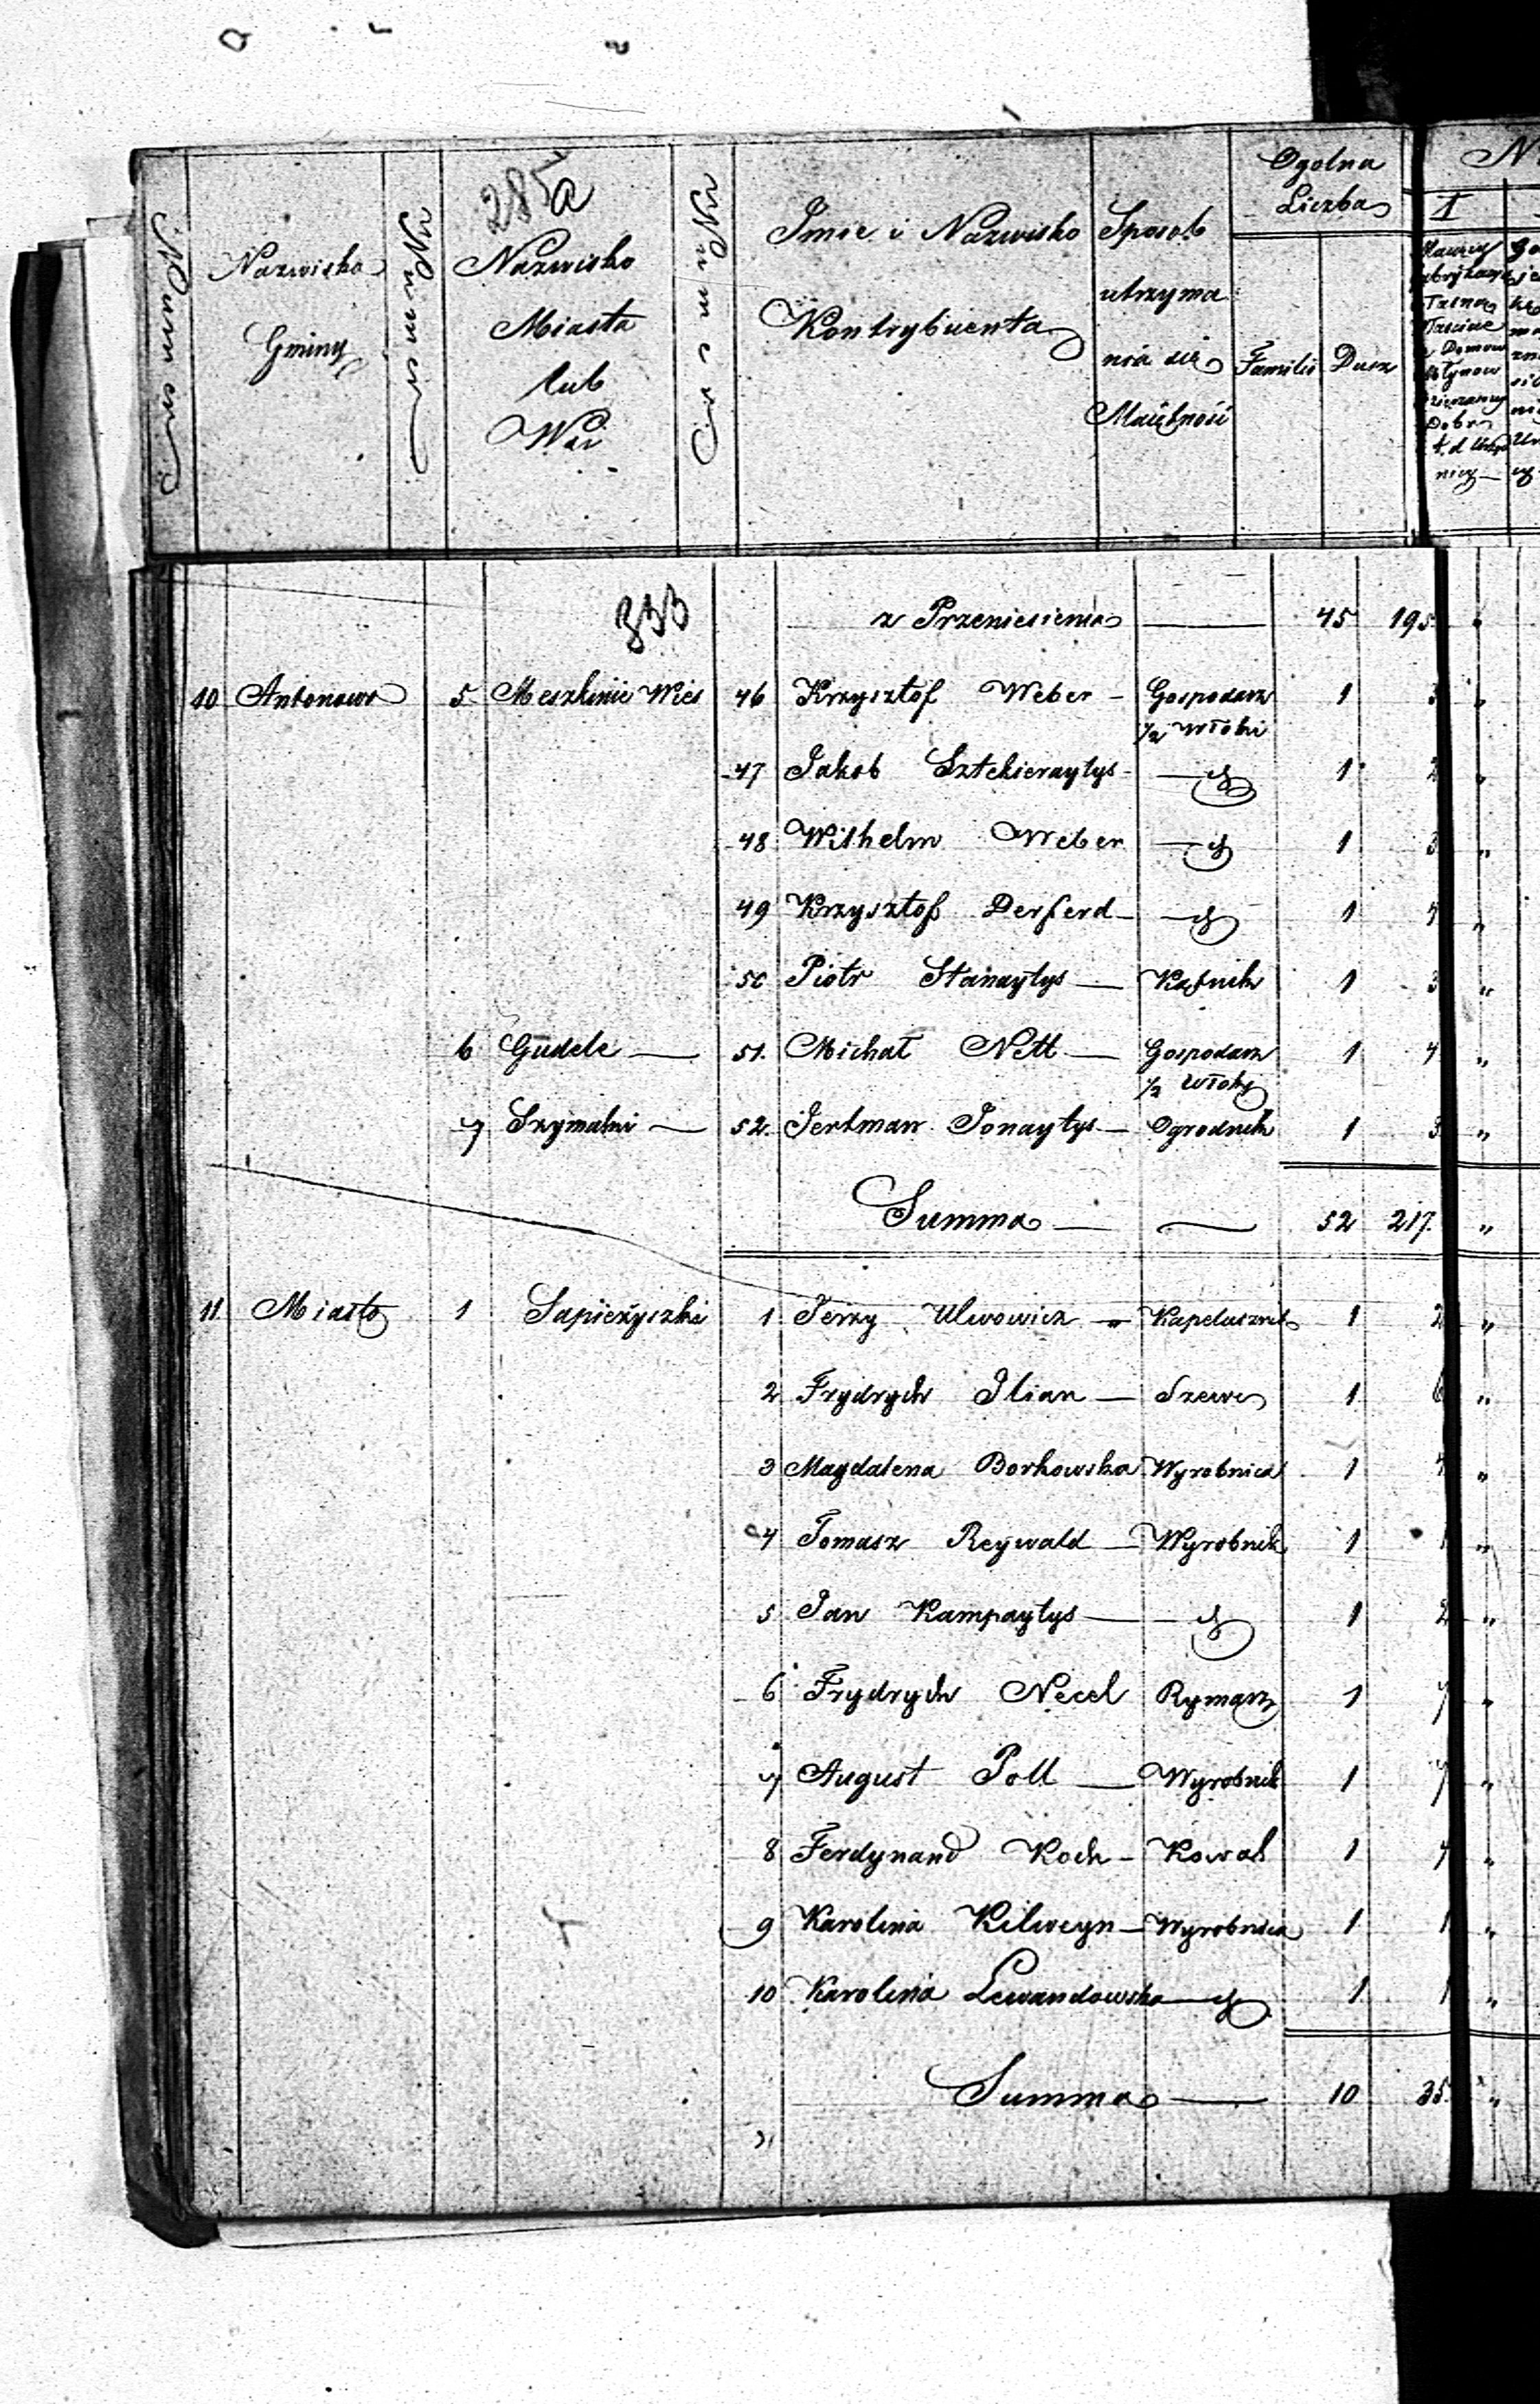 285a
Numer
Nazwisko
Gminy
Numer
Nazwisko
Miasta
lub
Wsi
Numer
Imie i Nazwisko
Kontrybuenta
Sposob
utrzyma
nia się
Maiętność
Ogolna
Liczba
Familii Dusz
N
I
333
z Przeniesienia 45 195 "
10 Antonowo 5 Meszkinie Wies 46 Krzysztof Weber Gospodarz 1 3 "
1/2 włoki
47 Jakob Sztekieraytys — 1 2 "
48 Wilhelm Weber — 1 3 "
49 Krzysztof Derferd — 1 4 "
50 Piotr Stanaytys — Kątnik 1 3 "
6 Gudele — 51. Michał Nett — Gospodarz 1 4 "
1/2 włoky
7 Szymalni — 52. Jertman Jonaytys — Ogrodnik 1 3 "
Summa — 52 217. "
11 Miasto 1 Sapieżyszki 1 Jerzy Ulwowicz — Kapelusznik 1 2 "
2 Frydrych Ilian — Szewc 1 6 "
3 Magdalena Borkowska Wyrobnica 1 4 "
4 Tomasz Reywald — Wyrobnik 1 1 "
5 Jan Kampaytys — 1 2 "
6 Frydrych Necel Rymarz 1 7 "
7 August Poll — Wyrobnik 1 7 "
8 Ferdynand Koch — Kowal 1 4 "
9 Karolina Kilweyn — Wyrobnica 1 1 "
10 Karolina Lewandowska — 1 1 "
Summa — 10 35. "